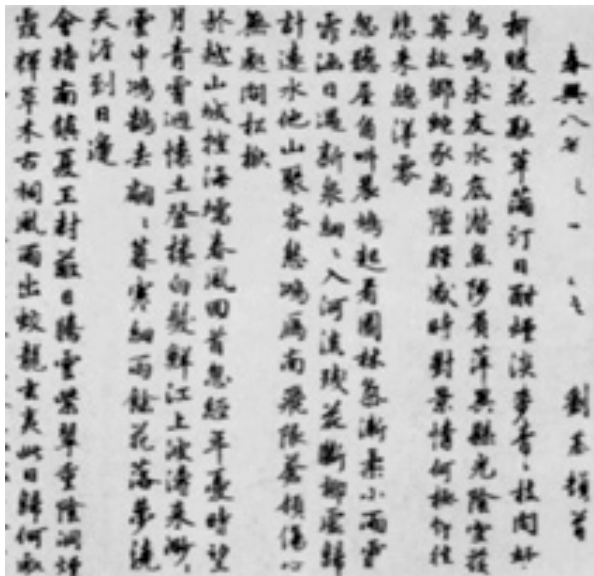 春興八首 劉基頓首
暖花融草滿汀日酣煙淡麥青、枝間好
鳥鳴求友水底潛魚陟負萍異縣光陰空荏
苒故鄉蛇豕尚 感時對景情何極佇
悲來總涕零
忽聽屋角叫晨鳩起看園林氣漸柔小雨雲
霄涵日過新泉細、入河流殘花斷柳 歸
計遠水他山聚客愁鴻雁南飛限蒼領傷心
無處問松楸
於越山城控海壖春風回首忽經年憂時望
月青霄迥懷土登樓白髮鮮江上波濤來渺、
雲中鴻鵠去翩、暮寒細雨餘花落夢繞
天涯到日邊
會稽南鎮夏王封蔽日騰雲紫翠重陰洞煙
霞輝草木古祠風雨出蛟龍玄夷此日歸何